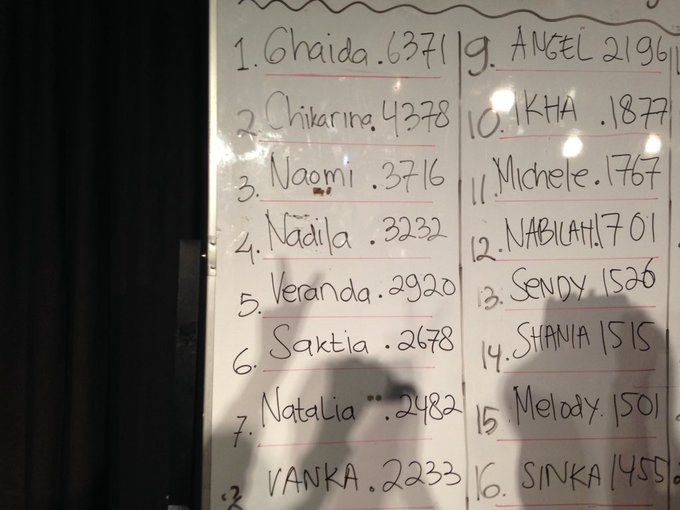 1. Ghaida . 6371
2. Chikarina. 4378
3. Naomi . 3716
4. Nadila . 3232
5. Veranda . 2920
6. Saktia . 2678
7. Natalia . 2482
VANKA . 2233
9. ANGEL 2196
10. IKHA . 1877
11. Michele . 1767
12. NABILAH. 1701
13. SENDY 1526
14. SHANIA 1515
15. Melody. 1501
16. SINKA 1455